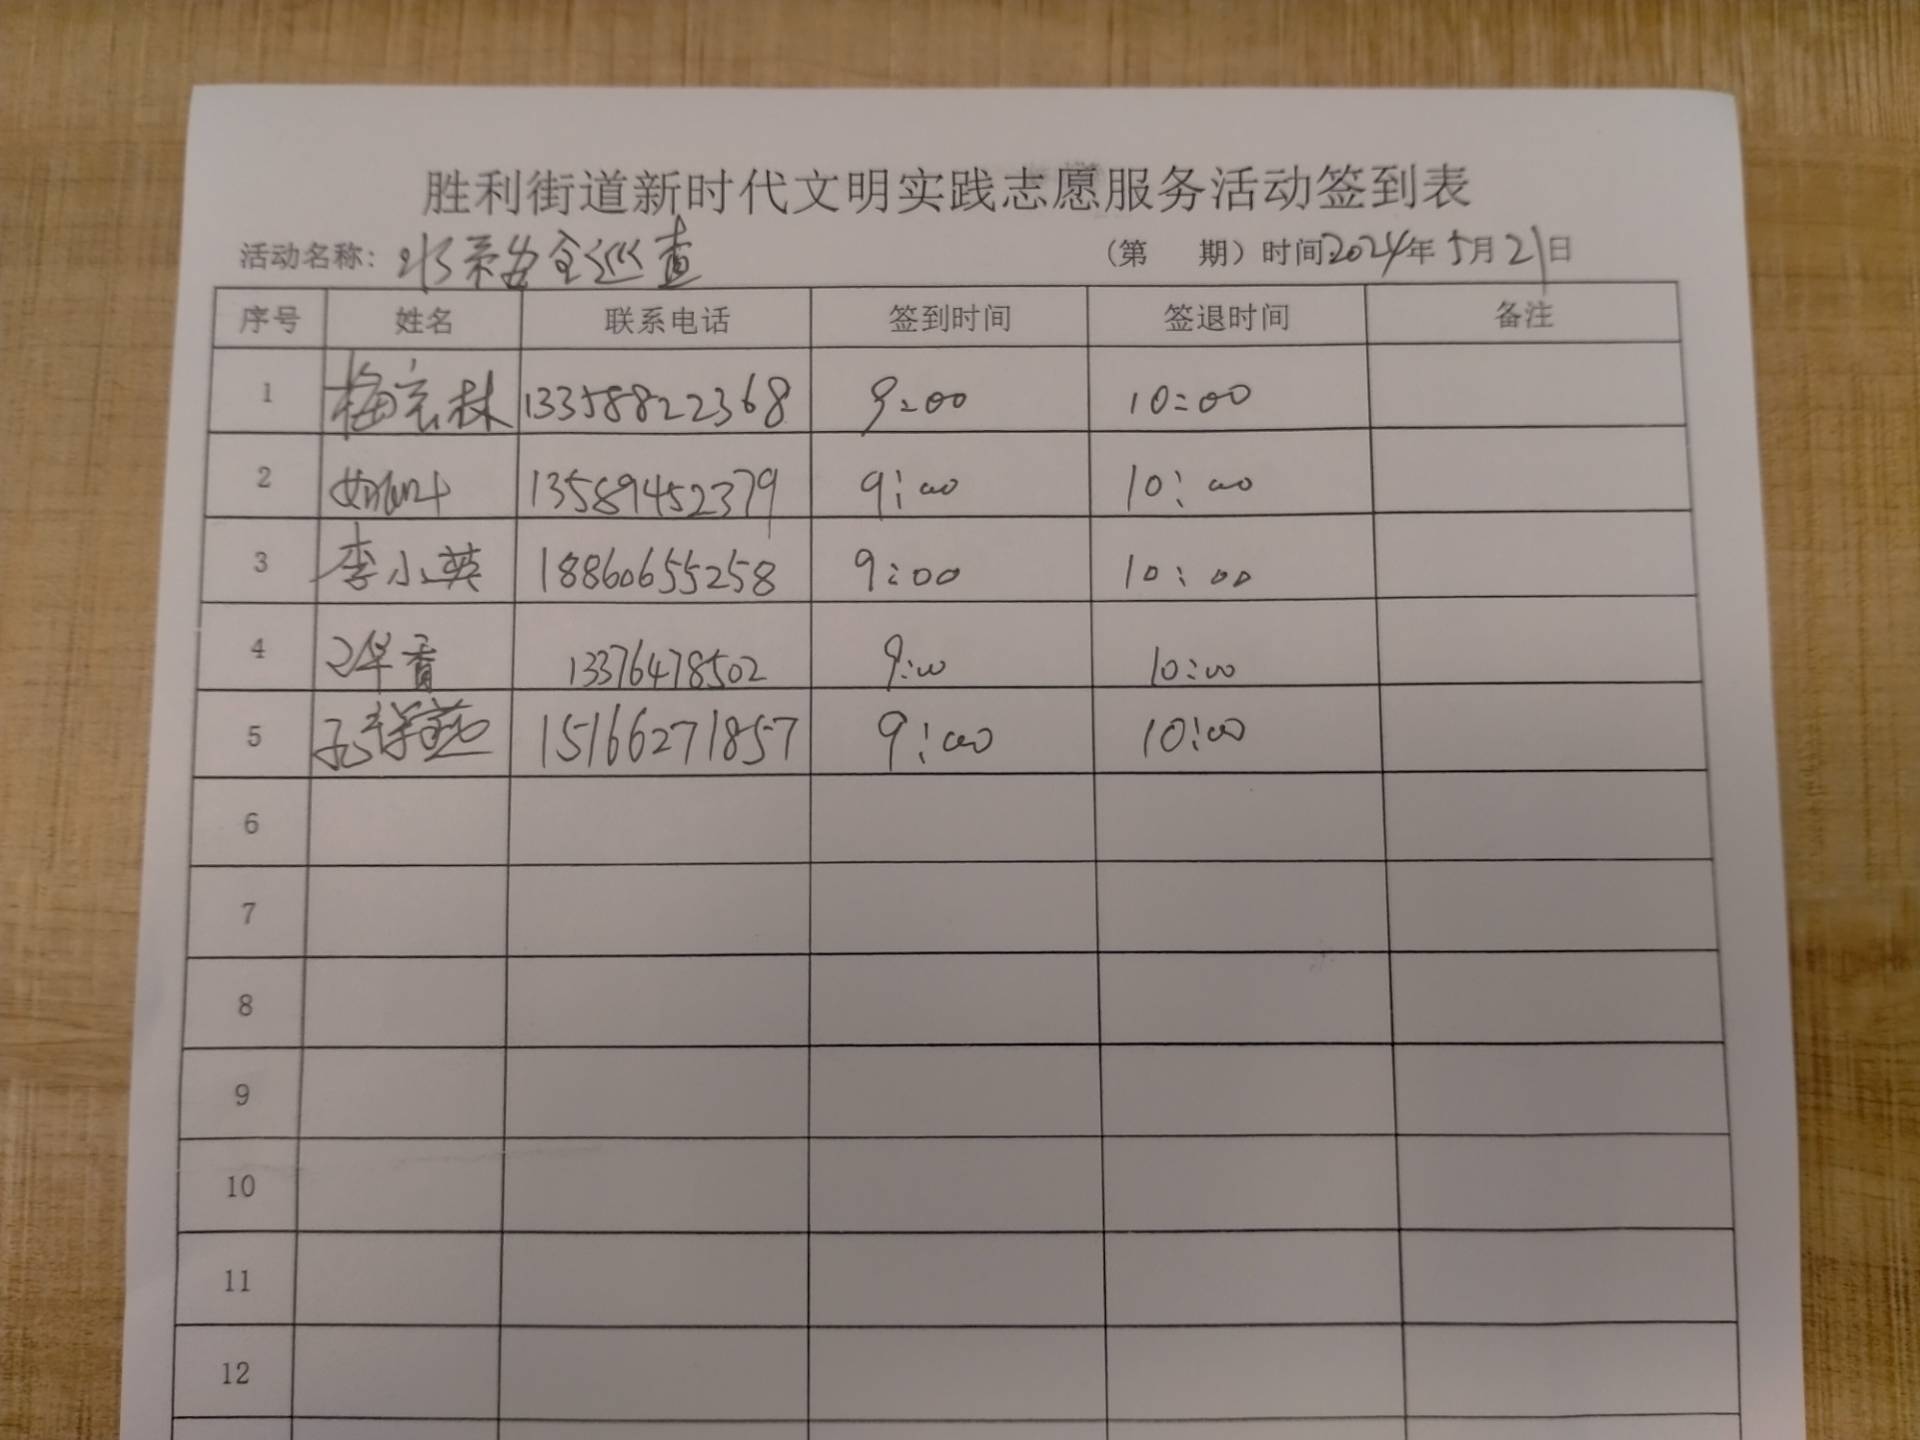 胜利街道新时代文明实践志愿服务活动签到表
活动名称：水系安全巡查 （第 期）时间2024年5月21日
序号 姓名 联系电话 签到时间 签退时间 备注
1 梅宏林 13358822368 9:00 10:00
2 13589452379 9:00 10:00
3 李小英 18860655258 9:00 10:00
4 13376478502 9:00 10:00
5 15166271857 9:00 10:00
6
7
8
9
10
11
12